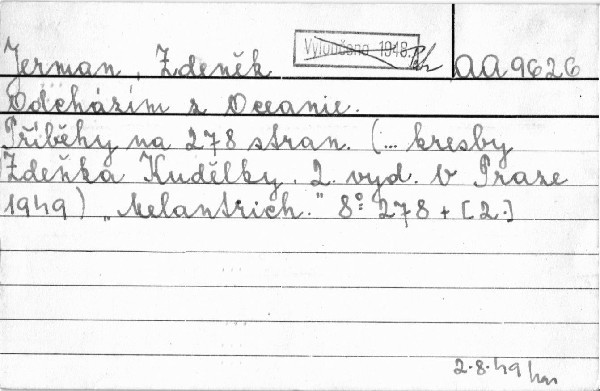 Jerman, Zdeněk Vyloučeno 1948. AA 9626
Odcházím z Oceanie.
Příběhy na 278 stran. (... kresby
Zdeňka Kudělky. 2. vyd. V Praze
1949) „Melantrich." 8° 278 + [2.]
2.8.49